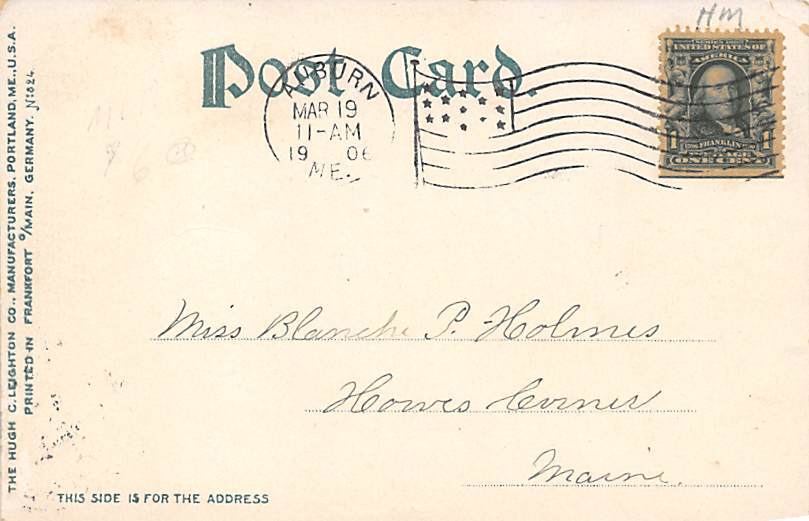 HM
Post Card.
AUBURN
MAR 19
11-AM
19 06
ME.
SERIES 1902
UNITED STATES OF
AMERICA
1 FRANKLIN 1
ONE CENT
Miss Blanche P. Holmes
Howes Corner
Maine.
THIS SIDE IS FOR THE ADDRESS
THE HUGH C. LEIGHTON CO., MANUFACTURERS, PORTLAND, ME., U.S.A.
PRINTED IN FRANKFORT O/MAIN, GERMANY. № 824